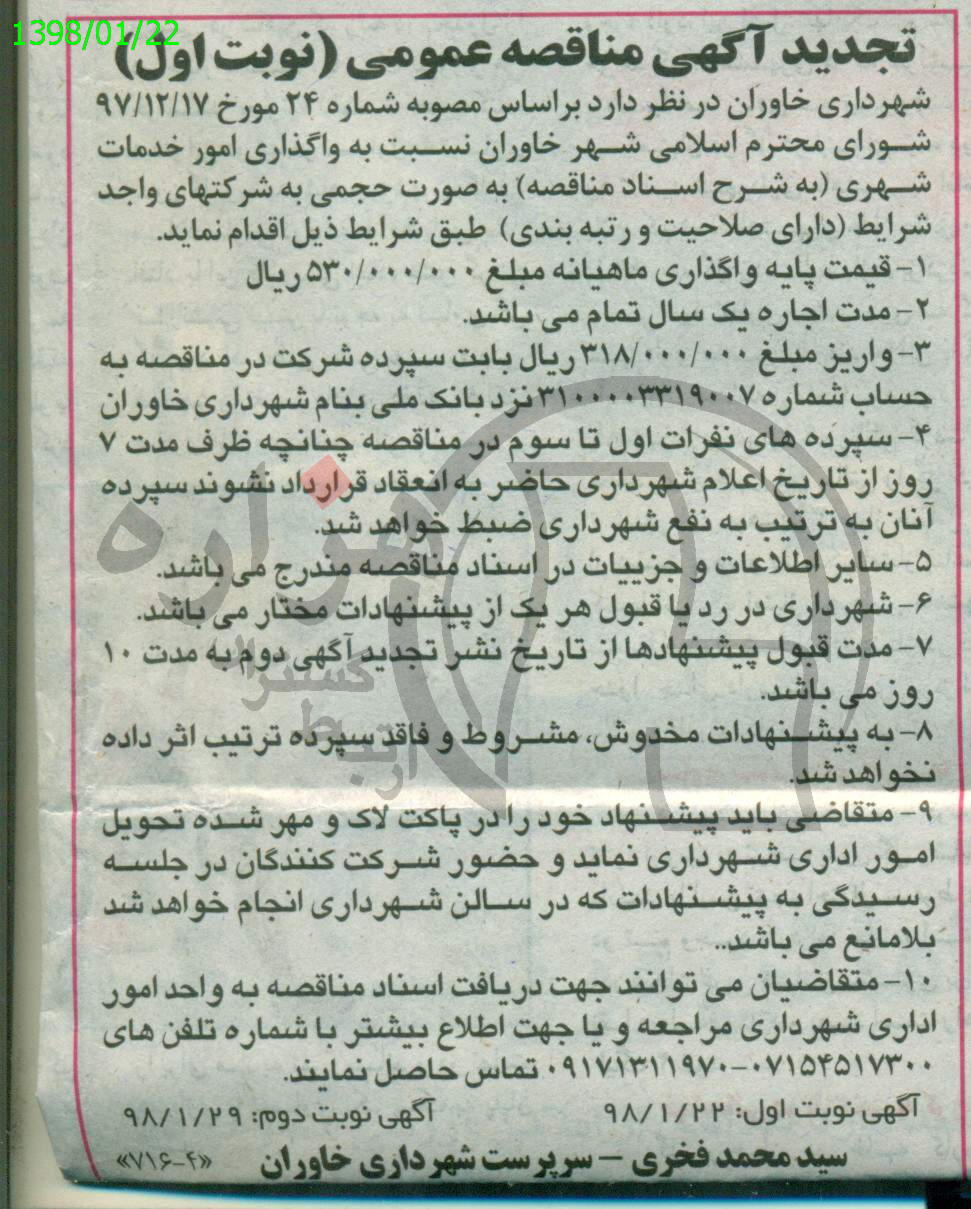 1398/01/22
تجدید آگهی مناقصه عمومی (نوبت اول)
شهرداری خاوران در نظر دارد براساس مصوبه شماره ۲۴ مورخ ۹۷/۱۲/۱۷
شورای محترم اسلامی شهر خاوران نسبت به واگذاری امور خدمات
شهری (به شرح اسناد مناقصه) به صورت حجمی به شرکتهای واجد
شرایط (دارای صلاحیت و رتبه بندی) طبق شرایط ذیل اقدام نماید.
۱- قیمت پایه واگذاری ماهیانه مبلغ ۵۳۰/۰۰۰/۰۰۰ ریال
۲- مدت اجاره یک سال تمام می باشد.
۳- واریز مبلغ ۳۱۸/۰۰۰/۰۰۰ ریال بابت سپرده شرکت در مناقصه به
حساب شماره ۳۱۰۰۰۰۳۳۱۹۰۰۷ نزد بانک ملی بنام شهرداری خاوران
۴- سپرده های نفرات اول تا سوم در مناقصه چنانچه ظرف مدت ۷
روز از تاریخ اعلام شهرداری حاضر به انعقاد قرارداد نشوند سپرده
آنان به ترتیب به نفع شهرداری ضبط خواهد شد.
۵- سایر اطلاعات و جزییات در اسناد مناقصه مندرج می باشد.
۶- شهرداری در رد یا قبول هر یک از پیشنهادات مختار می باشد.
۷- مدت قبول پیشنهادها از تاریخ نشر تجدید آگهی دوم به مدت ۱۰
روز می باشد.
۸- به پیشنهادات مخدوش، مشروط و فاقد سپرده ترتیب اثر داده
نخواهد شد.
۹- متقاضی باید پیشنهاد خود را در پاکت لاک و مهر شده تحویل
امور اداری شهرداری نماید و حضور شرکت کنندگان در جلسه
رسیدگی به پیشنهادات که در سالن شهرداری انجام خواهد شد
بلامانع می باشد..
۱۰- متقاضیان می توانند جهت دریافت اسناد مناقصه به واحد امور
اداری شهرداری مراجعه و یا جهت اطلاع بیشتر با شماره تلفن های
۰۷۱۵۴۵۱۷۳۰۰-۰۹۱۷۱۳۱۱۹۷۰ تماس حاصل نمایند.
آگهی نوبت اول: ۹۸/۱/۲۲ آگهی نوبت دوم: ۹۸/۱/۲۹
سید محمد فخری – سرپرست شهرداری خاوران «۷۱۶-۴»